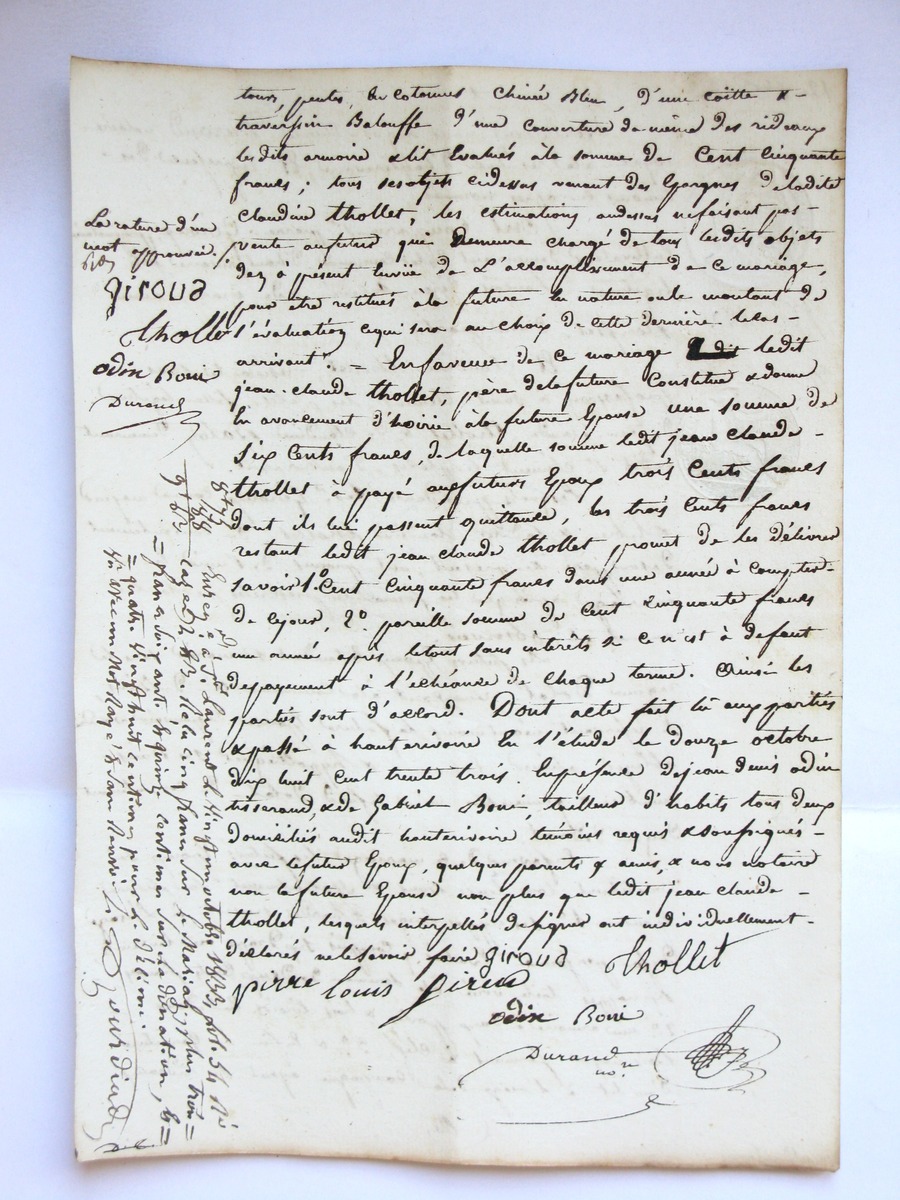 tours, pentes, en cotonnes Chinée Bleu, d'une coëtte &
traversin Balouffe d'une couverture de même des rideaux
lesdits armoire & lit Evalués à la somme de Cent Cinquante
francs; tous ses objets cidessus venant des Gargnes de ladite
Claudine thollet, les estimations audessus ne faisant pas
vente aufutur qui Demeure chargé de tous lesdits objets
dez à présent Envüe de L'accomplissement de ce mariage,
pour etre restitués à la future En nature ou le montant de
l'évaluation ce qui sera au choix de cette dernière le cas
arrivant. = En faveur de ce mariage ledit
jean-claude thollet, père de la future Constitue & donne
En avancement d'hoirie à la future Epouse une somme de
Six Cents francs, de laquelle somme ledit jean claude
thollet à payé aux futurs Epoux trois Cents francs
dont ils lui passent quittance, les trois Cents francs
restant ledit jean claude thollet promet de les délivrer
savoir 1º Cent Cinquante francs dans une année à compter
de cejour, 2º pareille somme de Cent Cinquante francs
une année après letout sans interêts si ce n'est à defaut
depayement à l'echéance de chaque terme. Ainsi les
partiés sont d'accord. Dont acte fait lû aux parties
& passé à hauterivoire En l'étude le douze octobre
dix huit Cent trente trois. En présence dejean denis odin
tisserand, & de Gabriel Boni, tailleur d'habits tous deux
domiciliés audit hauterivoire témoins requis & soussignés
avec le futur Epoux, quelques parents & amis, & nous notaire
non la future Epouse non plus que ledit jean claude
thollet, lesquels interpellés designer ont individuellement
déclarés ne le savoir faire giroud Thollet
pirre louis giroud
odin Boni
Durand
no.re
La rature d'un
mot approuvée.
giroud
Thollet
odin Boni
Durand
Enreg.é à S.t Laurent le vingt un octobre 1833, f.º 54 r.º
cases 2 & 3. Reçu cinq francs sur le Mariage, plus trois =
= francs soixante & quinze centimes sur la donation, & =
= quatre vingt huit centimes pour le délime.